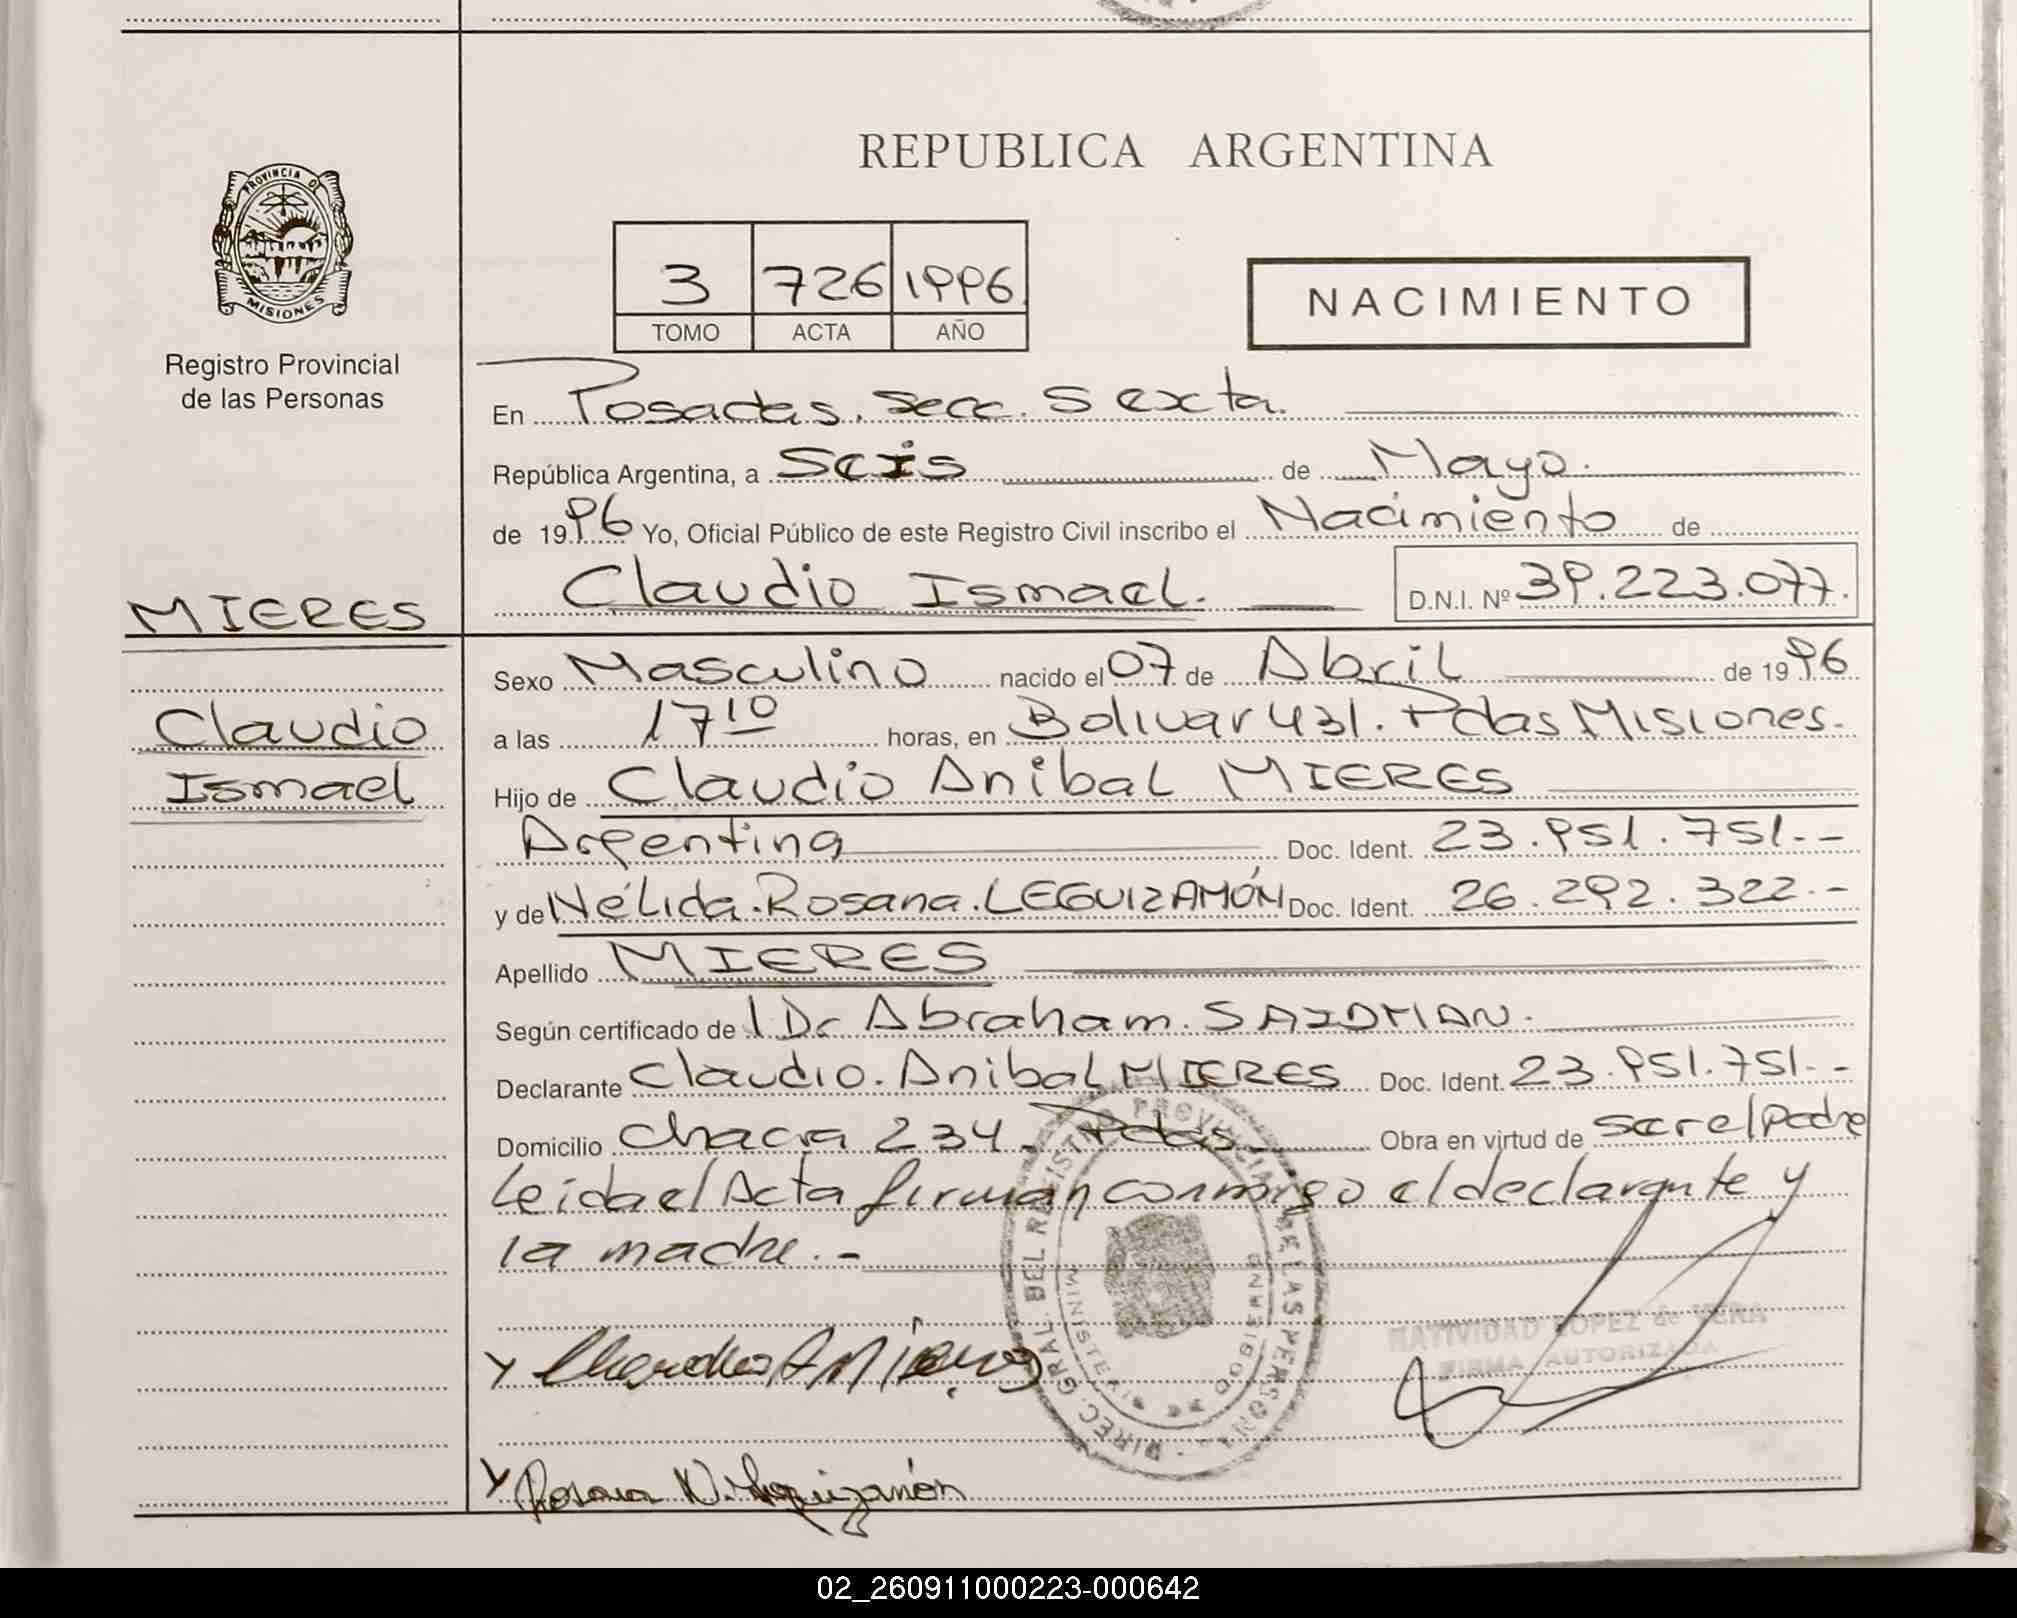 REPUBLICA ARGENTINA
PROVINCIA DE
MISIONES
Registro Provincial
de las Personas
3 726 1996
TOMO ACTA AÑO
NACIMIENTO
En Posadas. Secc. Sexta.
República Argentina, a Seis de Mayo.
de 1996 Yo, Oficial Público de este Registro Civil inscribo el Nacimiento de
Claudio Ismael. D.N.I. Nº 39.223.077.
MIERES
Claudio
Ismael
Sexo Masculino nacido el 07 de Abril de 1996
a las 17 10 horas, en Bolivar 431. Pdas Misiones.
Hijo de Claudio Anibal MIERES
Argentina Doc. Ident. 23.951.751.-
y de Nélida. Rosana. LEGUIZAMÓN Doc. Ident. 26.292.322.-
Apellido MIERES
Según certificado de Dr Abraham. SAIDMAN.
Declarante Claudio. Anibal MIERES Doc. Ident. 23.951.751.-
Domicilio Chacra 234. Pdas. Obra en virtud de ser el Padre
Leida el Acta firman conmigo el declarante y
la madre.-
DIREC. GRAL. DEL REGISTRO PROVINCIAL DE LAS PERSONAS
MINISTERIO DE GOBIERNO
NATIVIDAD LOPEZ de VERA
FIRMA AUTORIZADA
Rosana N. Leguizamón
02_260911000223-000642